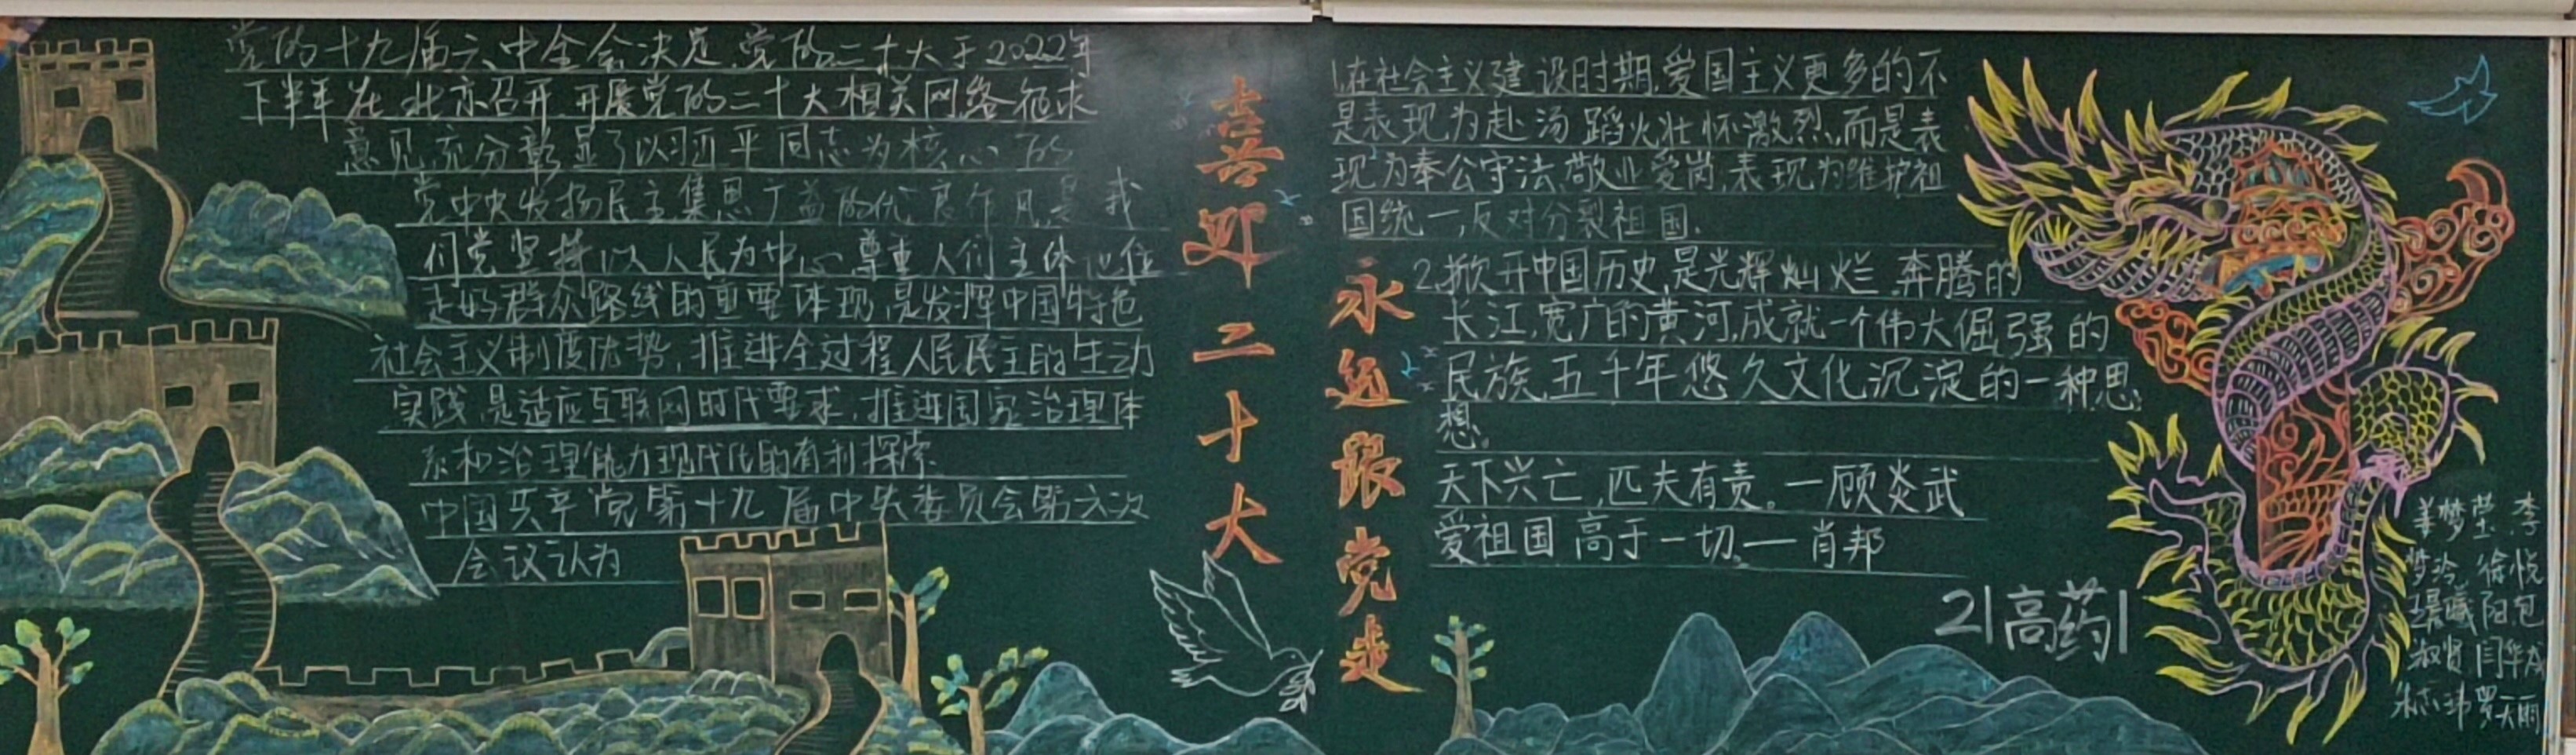 党的十九届六中全会决定,党的二十大于2022年
下半年在北京召开,开展党的二十大相关网络征求
意见,充分彰显了以习近平同志为核心的
党中央发扬民主集思广益的优良作风,是我
们党坚持以人民为中心,尊重人们主体地位
走好群众路线的重要体现,是发挥中国特色
社会主义制度优势,推进全过程人民民主的生动
实践,是适应互联网时代要求,推进国家治理体
系和治理能力现代化的有利探索.
中国共产党第十九届中央委员会第六次
会议认为
喜迎二十大
永远跟党走
1.在社会主义建设时期,爱国主义更多的不
是表现为赴汤蹈火壮怀激烈,而是表
现为奉公守法,敬业爱岗,表现为维护祖
国统一,反对分裂祖国.
2.掀开中国历史,是光辉灿烂,奔腾的
长江,宽广的黄河,成就一个伟大倔强的
民族,五千年悠久文化沉淀的一种思
想。
天下兴亡,匹夫有责。一顾炎武
爱祖国高于一切。一肖邦
21高药1
姜梦莹 李
梦泠 徐悦
曦 阳 包
淑贤 闫华成
朱志玮 罗天雨